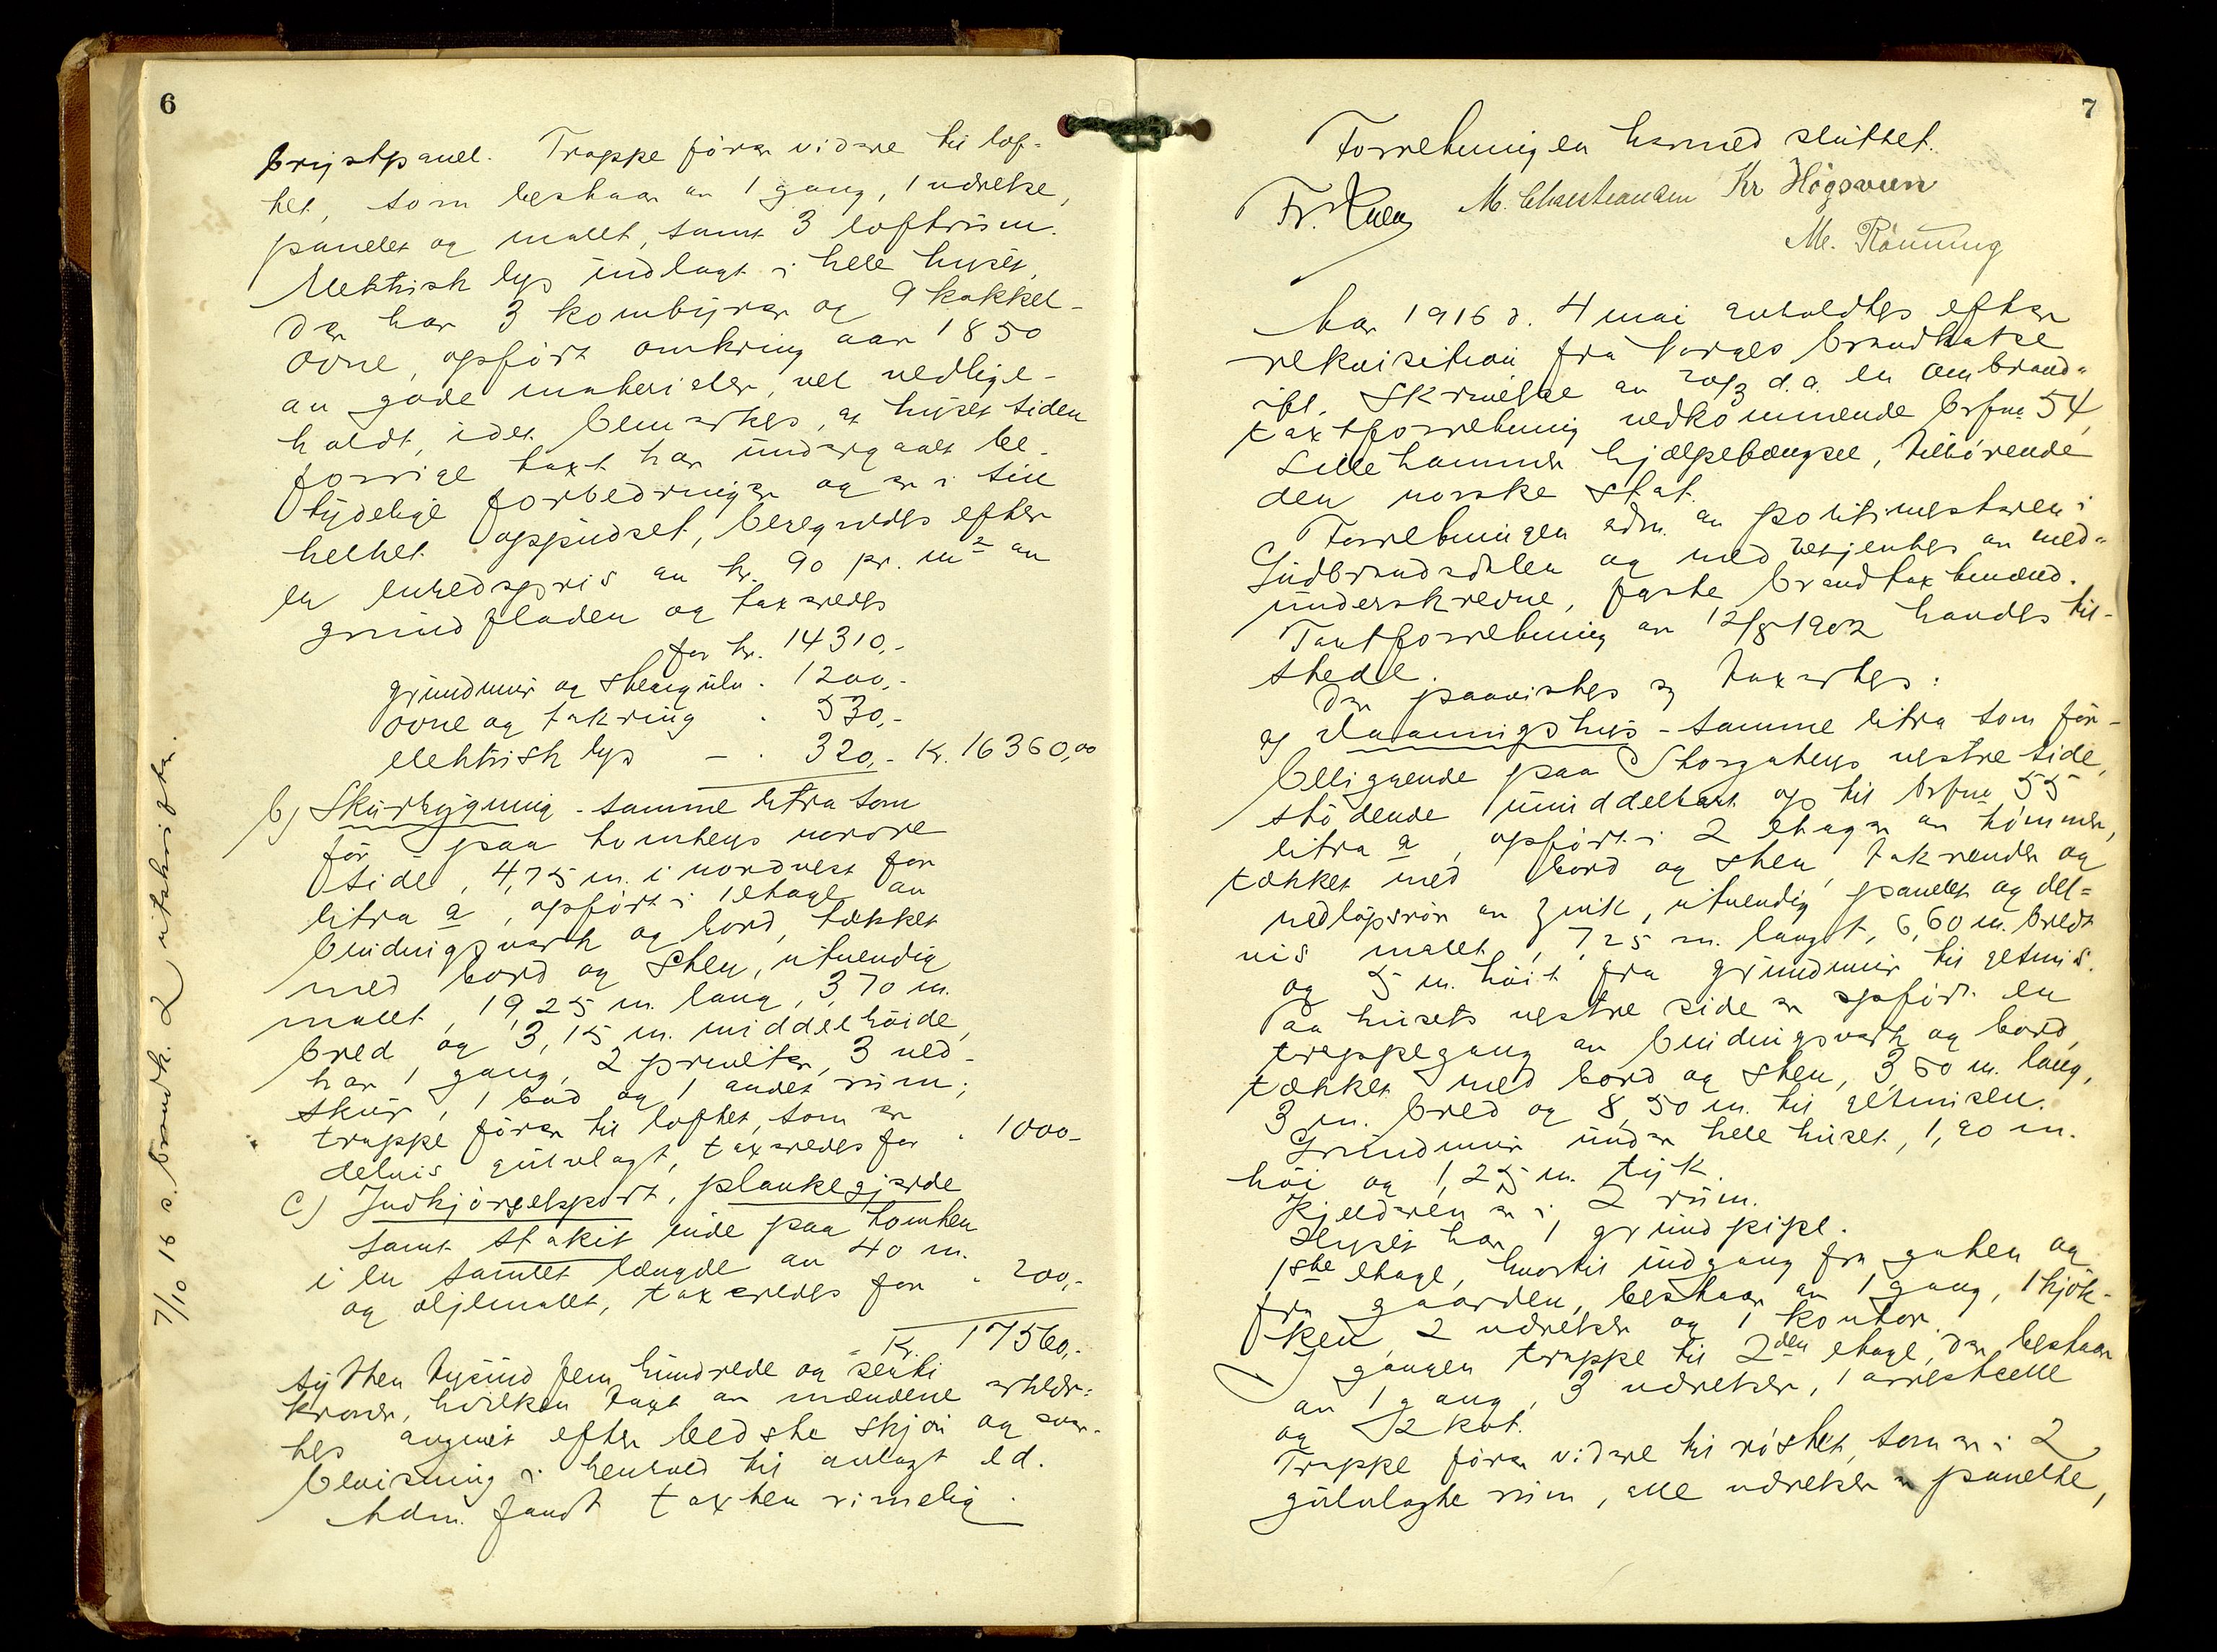 6
brystpanel. Trappe fører videre til lof-
tet, som bestaar av 1 gang, 1 værelse,
panelet og mallt, samt 3 loftrum.
Elektrisk lys indlagt i hele huset.
Der har 3 kombyrer og 9 kakkel-
ovne, opført omkring aar 1850
av gode materialer, vel vedlige-
holdt, idet bemerkes, at huset siden
forrige taxt har undergaaet be-
tydelige forbedringer og er i sin
helhet oppudset, beregnedes efter
en enhedspris av kr. 90 pr. m² av
grundfladen og taxeredes
for kr. 14310,-
grundmur og stengulv . 1200,-
ovne og takring . 530,-
elektrisk lys — . 320,- Kr. 16360,00
b) Skurbygning - samme litra som
før - paa tomtens nordre
side, 4,75 m. i nordvest for
litra a, opført i 1 etage av
bindingsverk og bord, tækket
med bord og sten, utvendig
mallt, 19,25 m. lang, 3,70 m.
bred og 3,15 m. middelhøide,
har 1 gang, 2 priveter, 3 ved-
skur, 1 bod og 1 andet rum;
trappe fører til loftet, som er
delvis gulvlagt, taxeredes for . 1000,-
c) Indkjørselsport, plankegjerde
samt stakit inde paa tomten
i en samlet længde av 40 m.
og oljemallt, taxeredes for . 200,-
Kr. 17560,-
sytten tusind fem hundrede og seksti
kroner, hvilken taxt av mændene erklær-
tes avgivet efter bedste skjøn og over-
bevisning i henhold til avlagt ed.
Adm. fandt taxten rimelig.
7/10 16 s. brandk. 2 utskrifter.
7
Forretningen hermed sluttet.
Fr. M. Christiansen Kr Högsveen
M. Rönning
Aar 1916 d. 4 mai avholdtes efter
rekvisition fra Norges brandkasse
ifl. skrivelse av 20/3 d.a. en ombrand-
taxtforretning vedkommende brfno 54,
Lillehammer hjælpefængsel, tilhørende
den norske stat.
Forretningen adm. av politimesteren i
Gudbrandsdalen og med betjentes av med-
underskrevne, faste brandtaxtmænd.
Taxtforretning av 12/8 1902 havdes til-
stede.
Der paavistes og taxertes:
a) Vaaningshus - samme litra som før -
beliggende paa Storgatens vestre side,
stødende umiddelbart op til brfno 55
litra a, opført i 2 etager av tømmer,
tækket med bord og sten, takrender og
nedløpsrør av zink, utvendig panelet og del-
vis mallt, 7,25 m. langt, 6,60 m. bredt
og 5 m. høit fra grundmur til gesims.
Paa husets vestre side er opført en
trappegang av bindingsverk og bord,
tækket med bord og sten, 3,50 m. lang,
3 m. bred og 8,50 m. til gesimsen.
Grundmur under hele huset, 1,90 m.
høi og 1,25 m. tyk.
Kjelderen er i 2 rum.
Huset har 1 grundpipe.
1ste etage, hvortil indgang fra gaten og
fra gaarden, bestaar av 1 gang, 1 kjøk-
ken, 2 værelser og 1 kontor.
I gangen trappe til 2den etage, der bestaar
av 1 gang, 3 værelser, 1 arrestcelle
og 2 kot.
Trappe fører videre til røstet, som er i 2
gulvlagte rum, alle værelser er panelte,